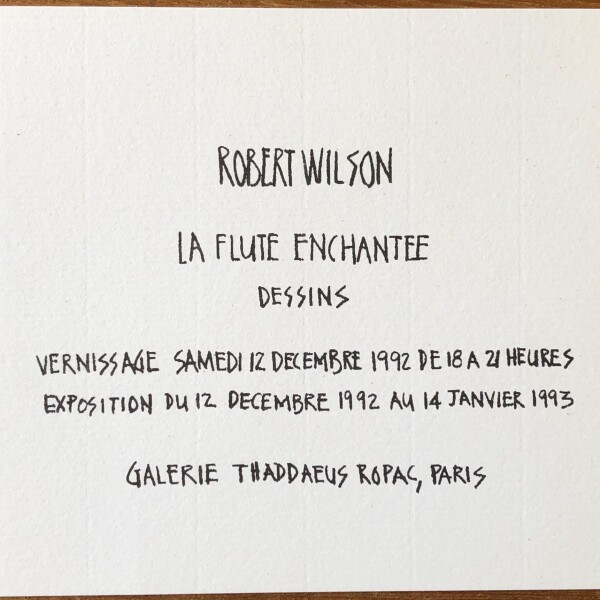 ROBERT WILSON
LA FLUTE ENCHANTEE
DESSINS
VERNISSAGE SAMEDI 12 DECEMBRE 1992 DE 18 A 21 HEURES
EXPOSITION DU 12 DECEMBRE 1992 AU 14 JANVIER 1993
GALERIE THADDAEUS ROPAC, PARIS